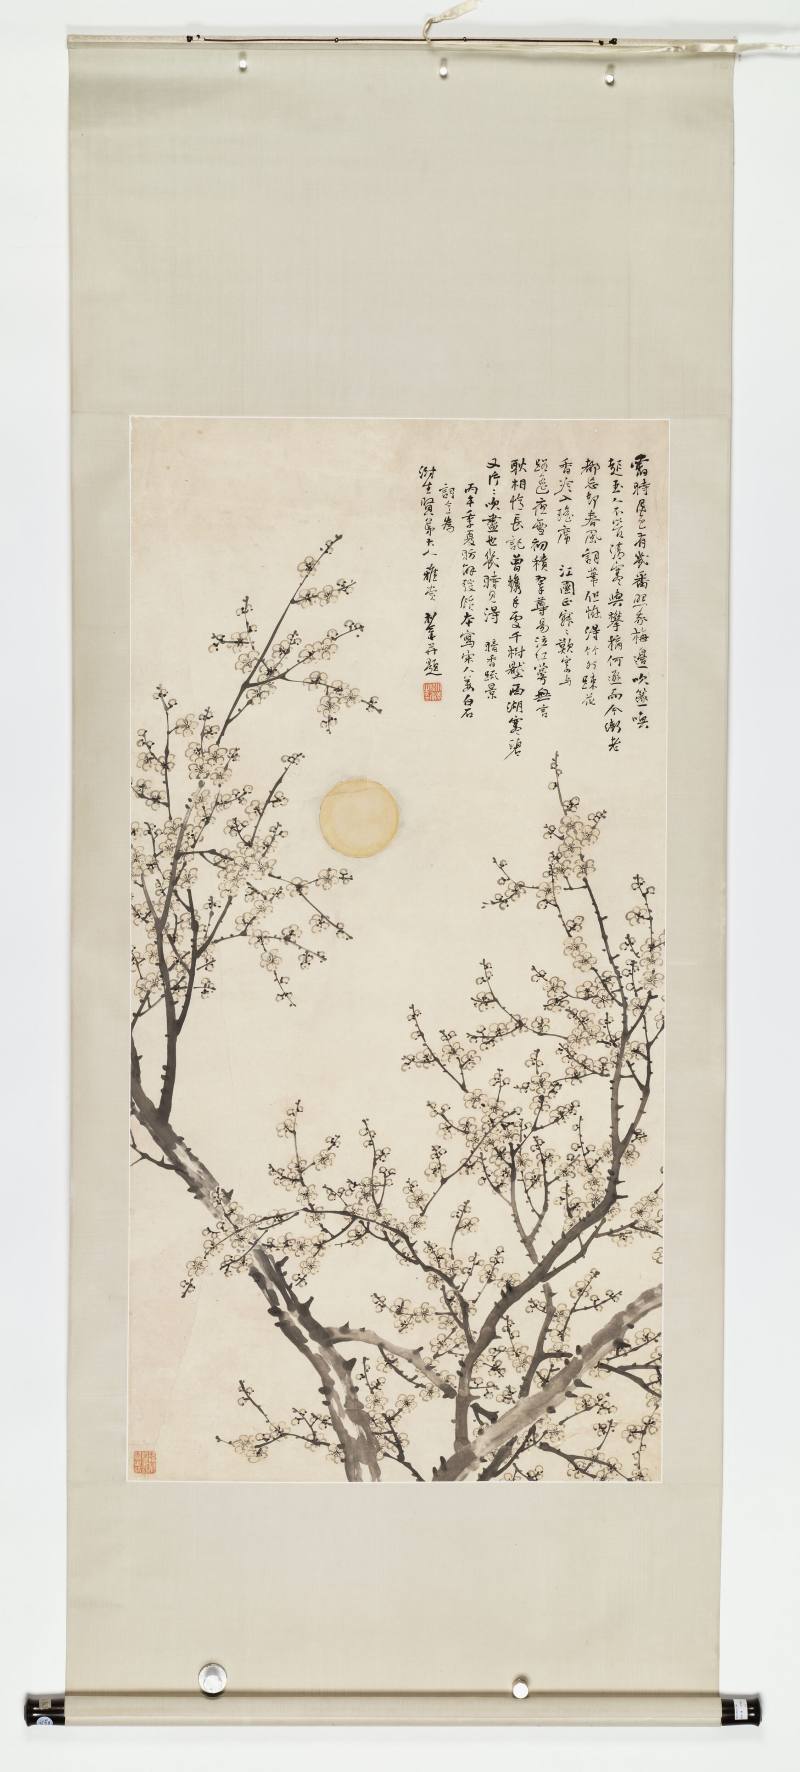 舊時月色有幾番照我梅邊吹篴喚
起玉人不管清寒與攀摘何遜而今漸老
都忘却春風詞筆但恠得竹外疎花
香冷入瑤席 江國正寂〻歎寄與
路遙夜雪初積翠尊易泣紅萼無言
耿相憶長記曾攜手處千樹壓西湖寒碧
又片〻吹盡也幾時見得 暗香疏景
丙午季夏 寫宋人姜白石
詞意為
賢弟大人雅 并題